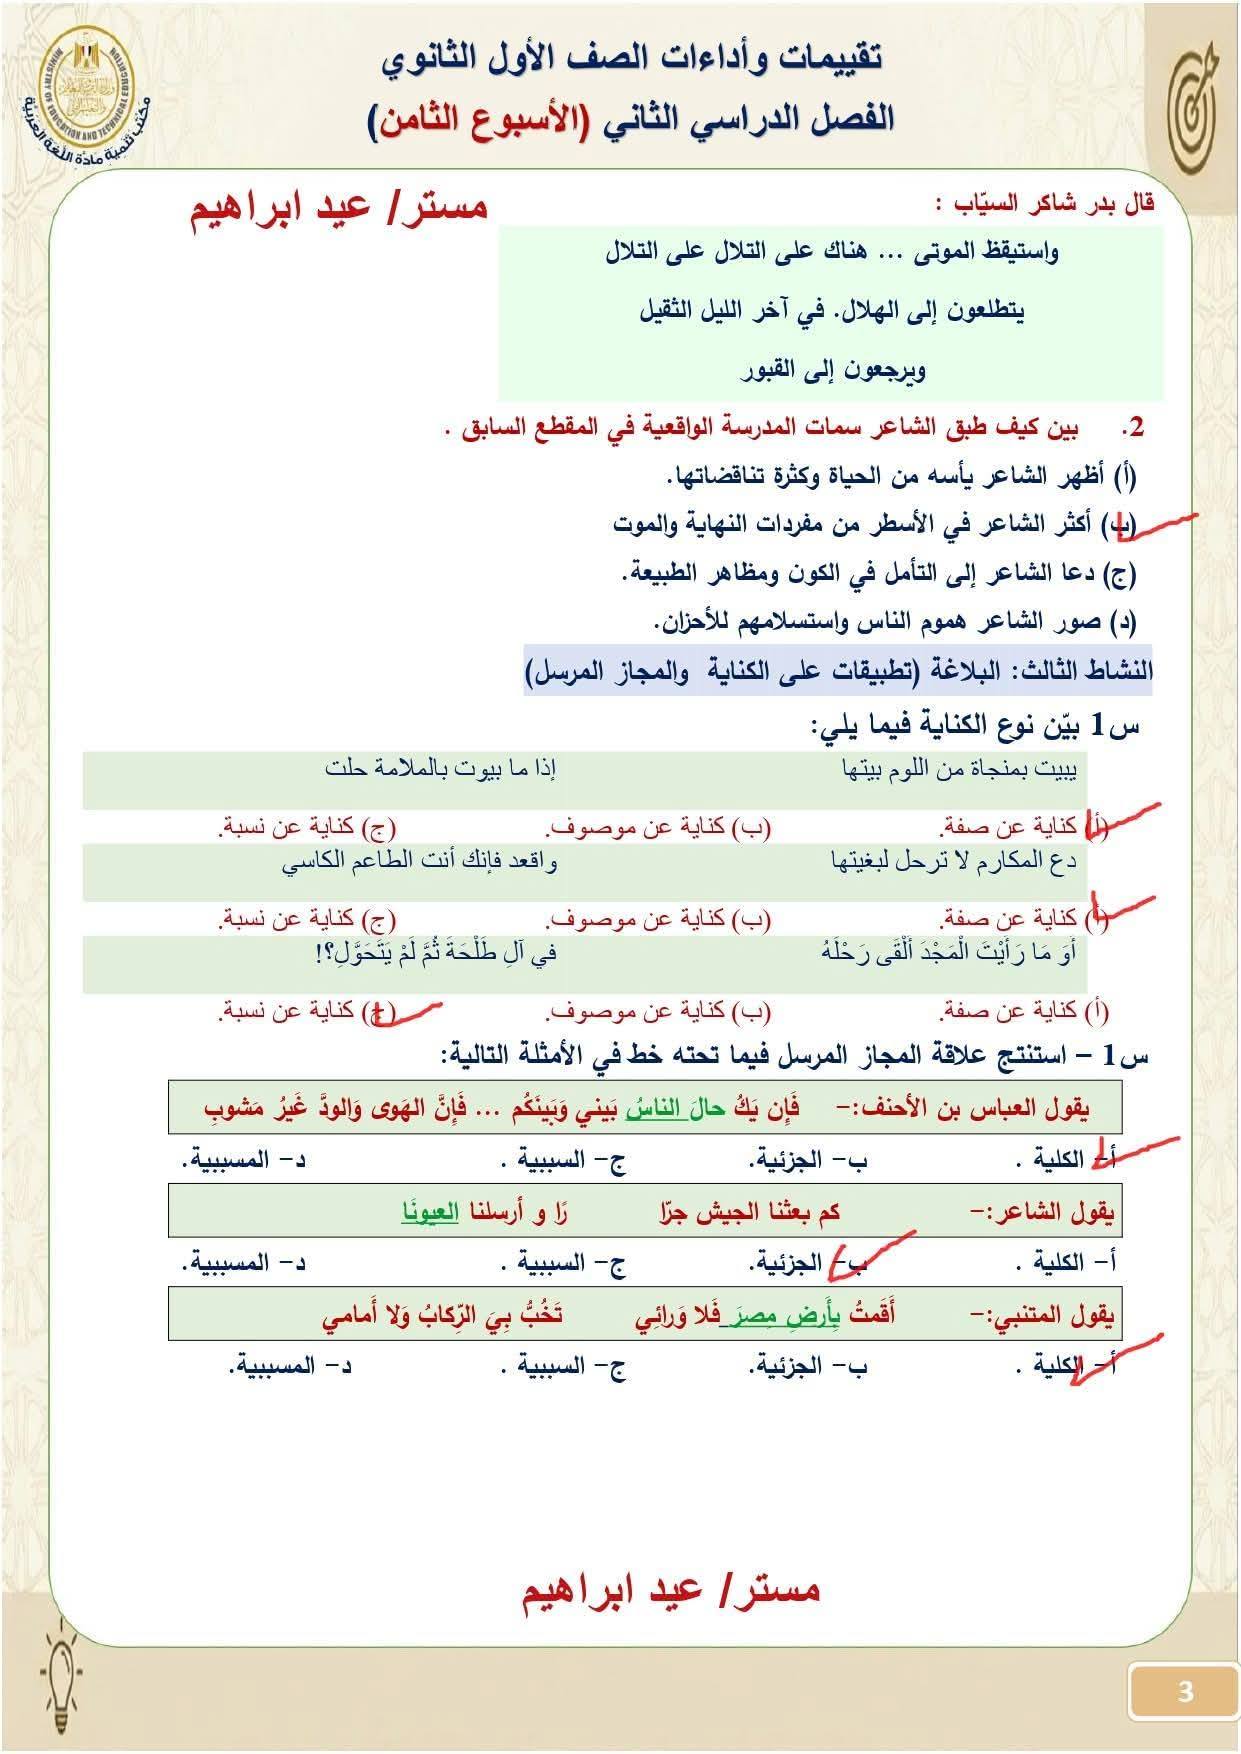 تقييمات وأداءات الصف الأول الثانوي
الفصل الدراسي الثاني (الأسبوع الثامن)
MINISTRY OF EDUCATION AND TECHNICAL EDUCATION
مكتب تنمية مادة اللغة العربية
مستر/ عيد ابراهيم
قال بدر شاكر السيّاب :
واستيقظ الموتى ... هناك على التلال على التلال
يتطلعون إلى الهلال. في آخر الليل الثقيل
ويرجعون إلى القبور
2. بين كيف طبق الشاعر سمات المدرسة الواقعية في المقطع السابق .
(أ) أظهر الشاعر يأسه من الحياة وكثرة تناقضاتها.
(ب) أكثر الشاعر في الأسطر من مفردات النهاية والموت
(ج) دعا الشاعر إلى التأمل في الكون ومظاهر الطبيعة.
(د) صور الشاعر هموم الناس واستسلامهم للأحزان.
النشاط الثالث: البلاغة (تطبيقات على الكناية والمجاز المرسل)
س1 بيّن نوع الكناية فيما يلي:
يبيت بمنجاة من اللوم بيتها إذا ما بيوت بالملامة حلت
(أ) كناية عن صفة. (ب) كناية عن موصوف. (ج) كناية عن نسبة.
دع المكارم لا ترحل لبغيتها واقعد فإنك أنت الطاعم الكاسي
(أ) كناية عن صفة. (ب) كناية عن موصوف. (ج) كناية عن نسبة.
أوَ مَا رَأَيْتَ الْمَجْدَ ألْقَى رَحْلَهُ في آلِ طَلْحَةَ ثُمَّ لَمْ يَتَحَوَّلِ؟!
(أ) كناية عن صفة. (ب) كناية عن موصوف. (ج) كناية عن نسبة.
س1 – استنتج علاقة المجاز المرسل فيما تحته خط في الأمثلة التالية:
يقول العباس بن الأحنف:- فَإِن يَكُ حالَ الناسُ بَيني وَبَينَكُم ... فَإِنَّ الهَوى وَالودَّ غَيرُ مَشوبِ
أ- الكلية . ب- الجزئية. ج- السببية . د- المسببية.
يقول الشاعر:- كم بعثنا الجيش جرّا رًا و أرسلنا العيونَا
أ- الكلية . ب- الجزئية. ج- السببية . د- المسببية.
يقول المتنبي:- أَقَمتُ بِأَرضِ مِصرَ فَلا وَرائِي تَخُبُّ بِيَ الرِّكابُ وَلا أَمامي
أ- الكلية . ب- الجزئية. ج- السببية . د- المسببية.
مستر/ عيد ابراهيم
3